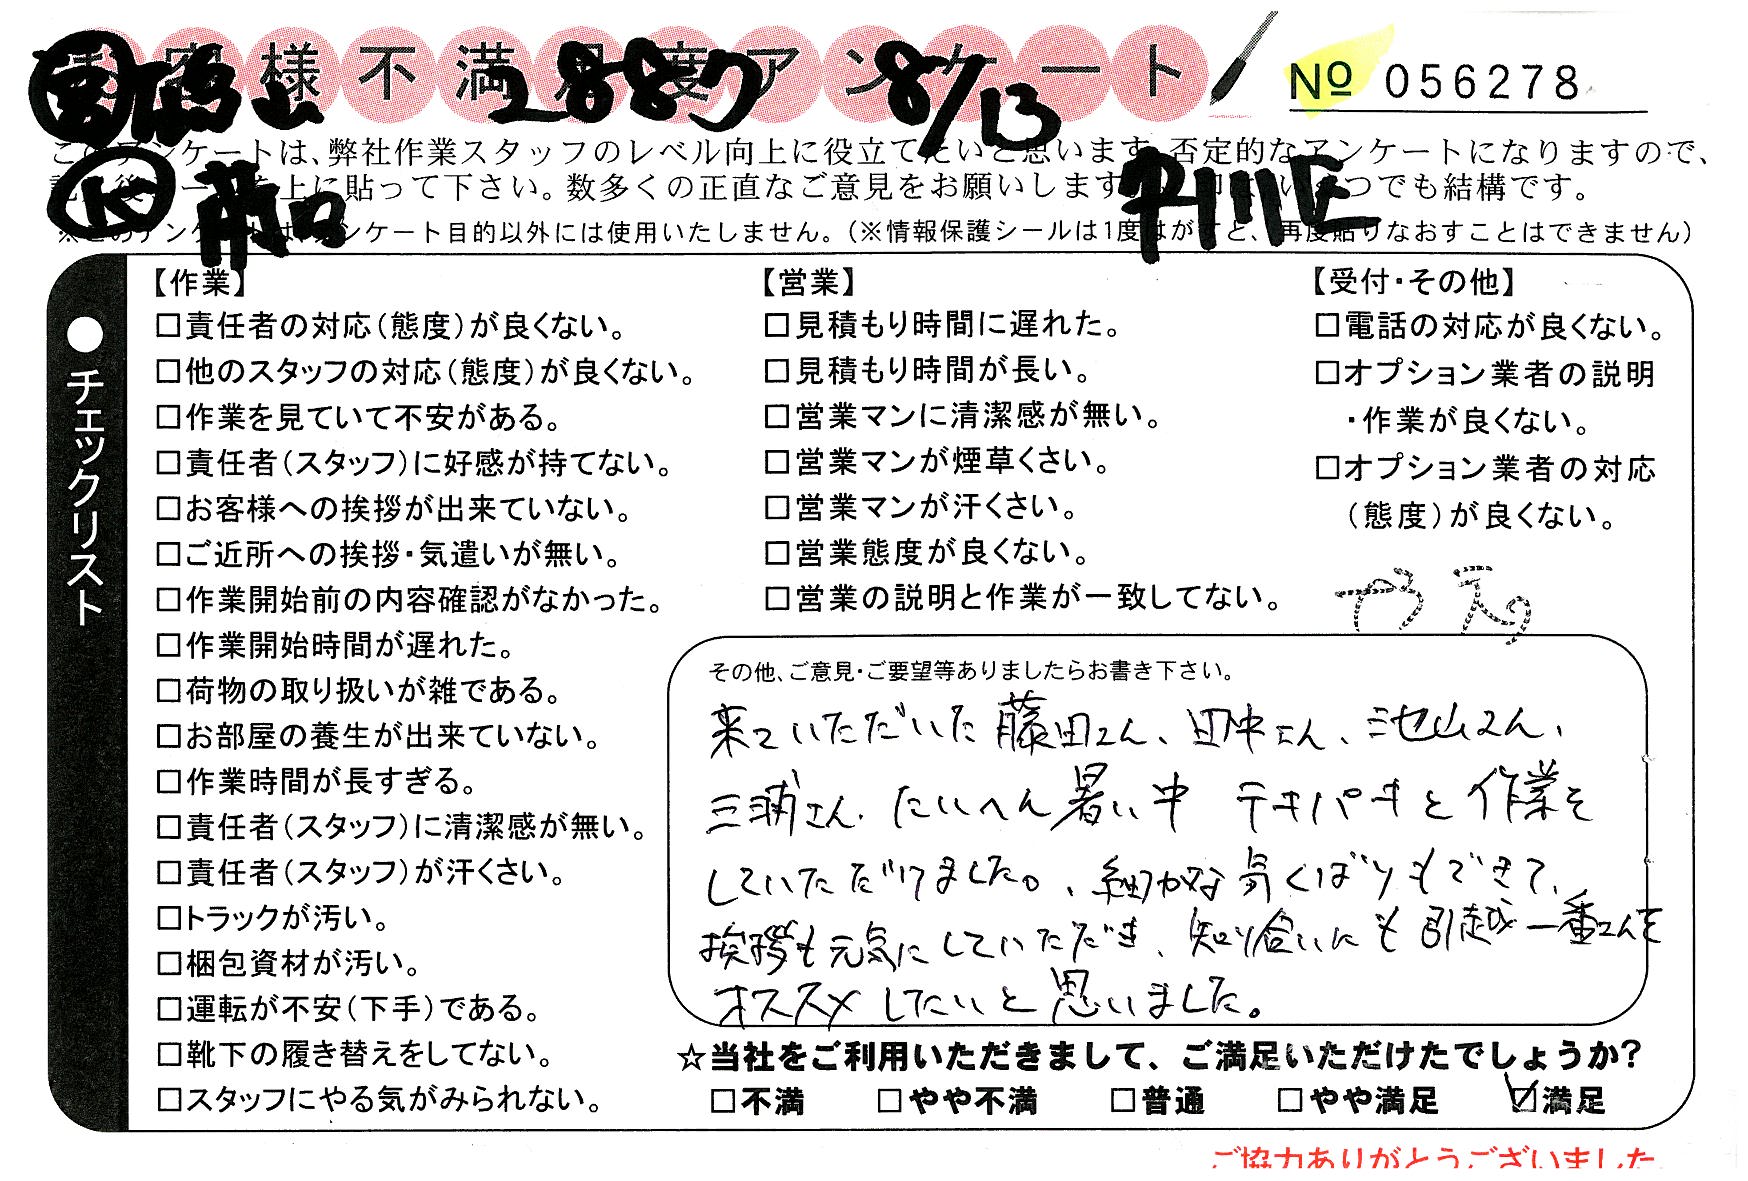 お客様不満足度アンケート
2887 8/13
No 056278
このアンケートは、弊社作業スタッフのレベル向上に役立てたいと思います。否定的なアンケートになりますので、
シールを上に貼って下さい。数多くの正直なご意見をお願いします。いくつでも結構です。
※このアンケートは、アンケート目的以外には使用いたしません。(※情報保護シールは1度はがすと、再度貼りなおすことはできません)
●チェックリスト
【作業】
□責任者の対応(態度)が良くない。
□他のスタッフの対応(態度)が良くない。
□作業を見ていて不安がある。
□責任者(スタッフ)に好感が持てない。
□お客様への挨拶が出来ていない。
□ご近所への挨拶・気遣いが無い。
□作業開始前の内容確認がなかった。
□作業開始時間が遅れた。
□荷物の取り扱いが雑である。
□お部屋の養生が出来ていない。
□作業時間が長すぎる。
□責任者(スタッフ)に清潔感が無い。
□責任者(スタッフ)が汗くさい。
□トラックが汚い。
□梱包資材が汚い。
□運転が不安(下手)である。
□靴下の履き替えをしてない。
□スタッフにやる気がみられない。
【営業】
□見積もり時間に遅れた。
□見積もり時間が長い。
□営業マンに清潔感が無い。
□営業マンが煙草くさい。
□営業マンが汗くさい。
□営業態度が良くない。
□営業の説明と作業が一致してない。
【受付・その他】
□電話の対応が良くない。
□オプション業者の説明
・作業が良くない。
□オプション業者の対応
(態度)が良くない。
その他、ご意見・ご要望等ありましたらお書き下さい。
来ていただいた藤田さん、田中さん、池山さん、
三浦さん、たいへん暑い中 テキパキと作業を
していただけました。、細かな気くばりもできて、
挨拶も元気にしていただき、知り合いにも引越一番さんを
オススメしたいと思いました。
☆当社をご利用いただきまして、ご満足いただけたでしょうか?
□不満 □やや不満 □普通 □やや満足 ☑満足
ご協力ありがとうございました